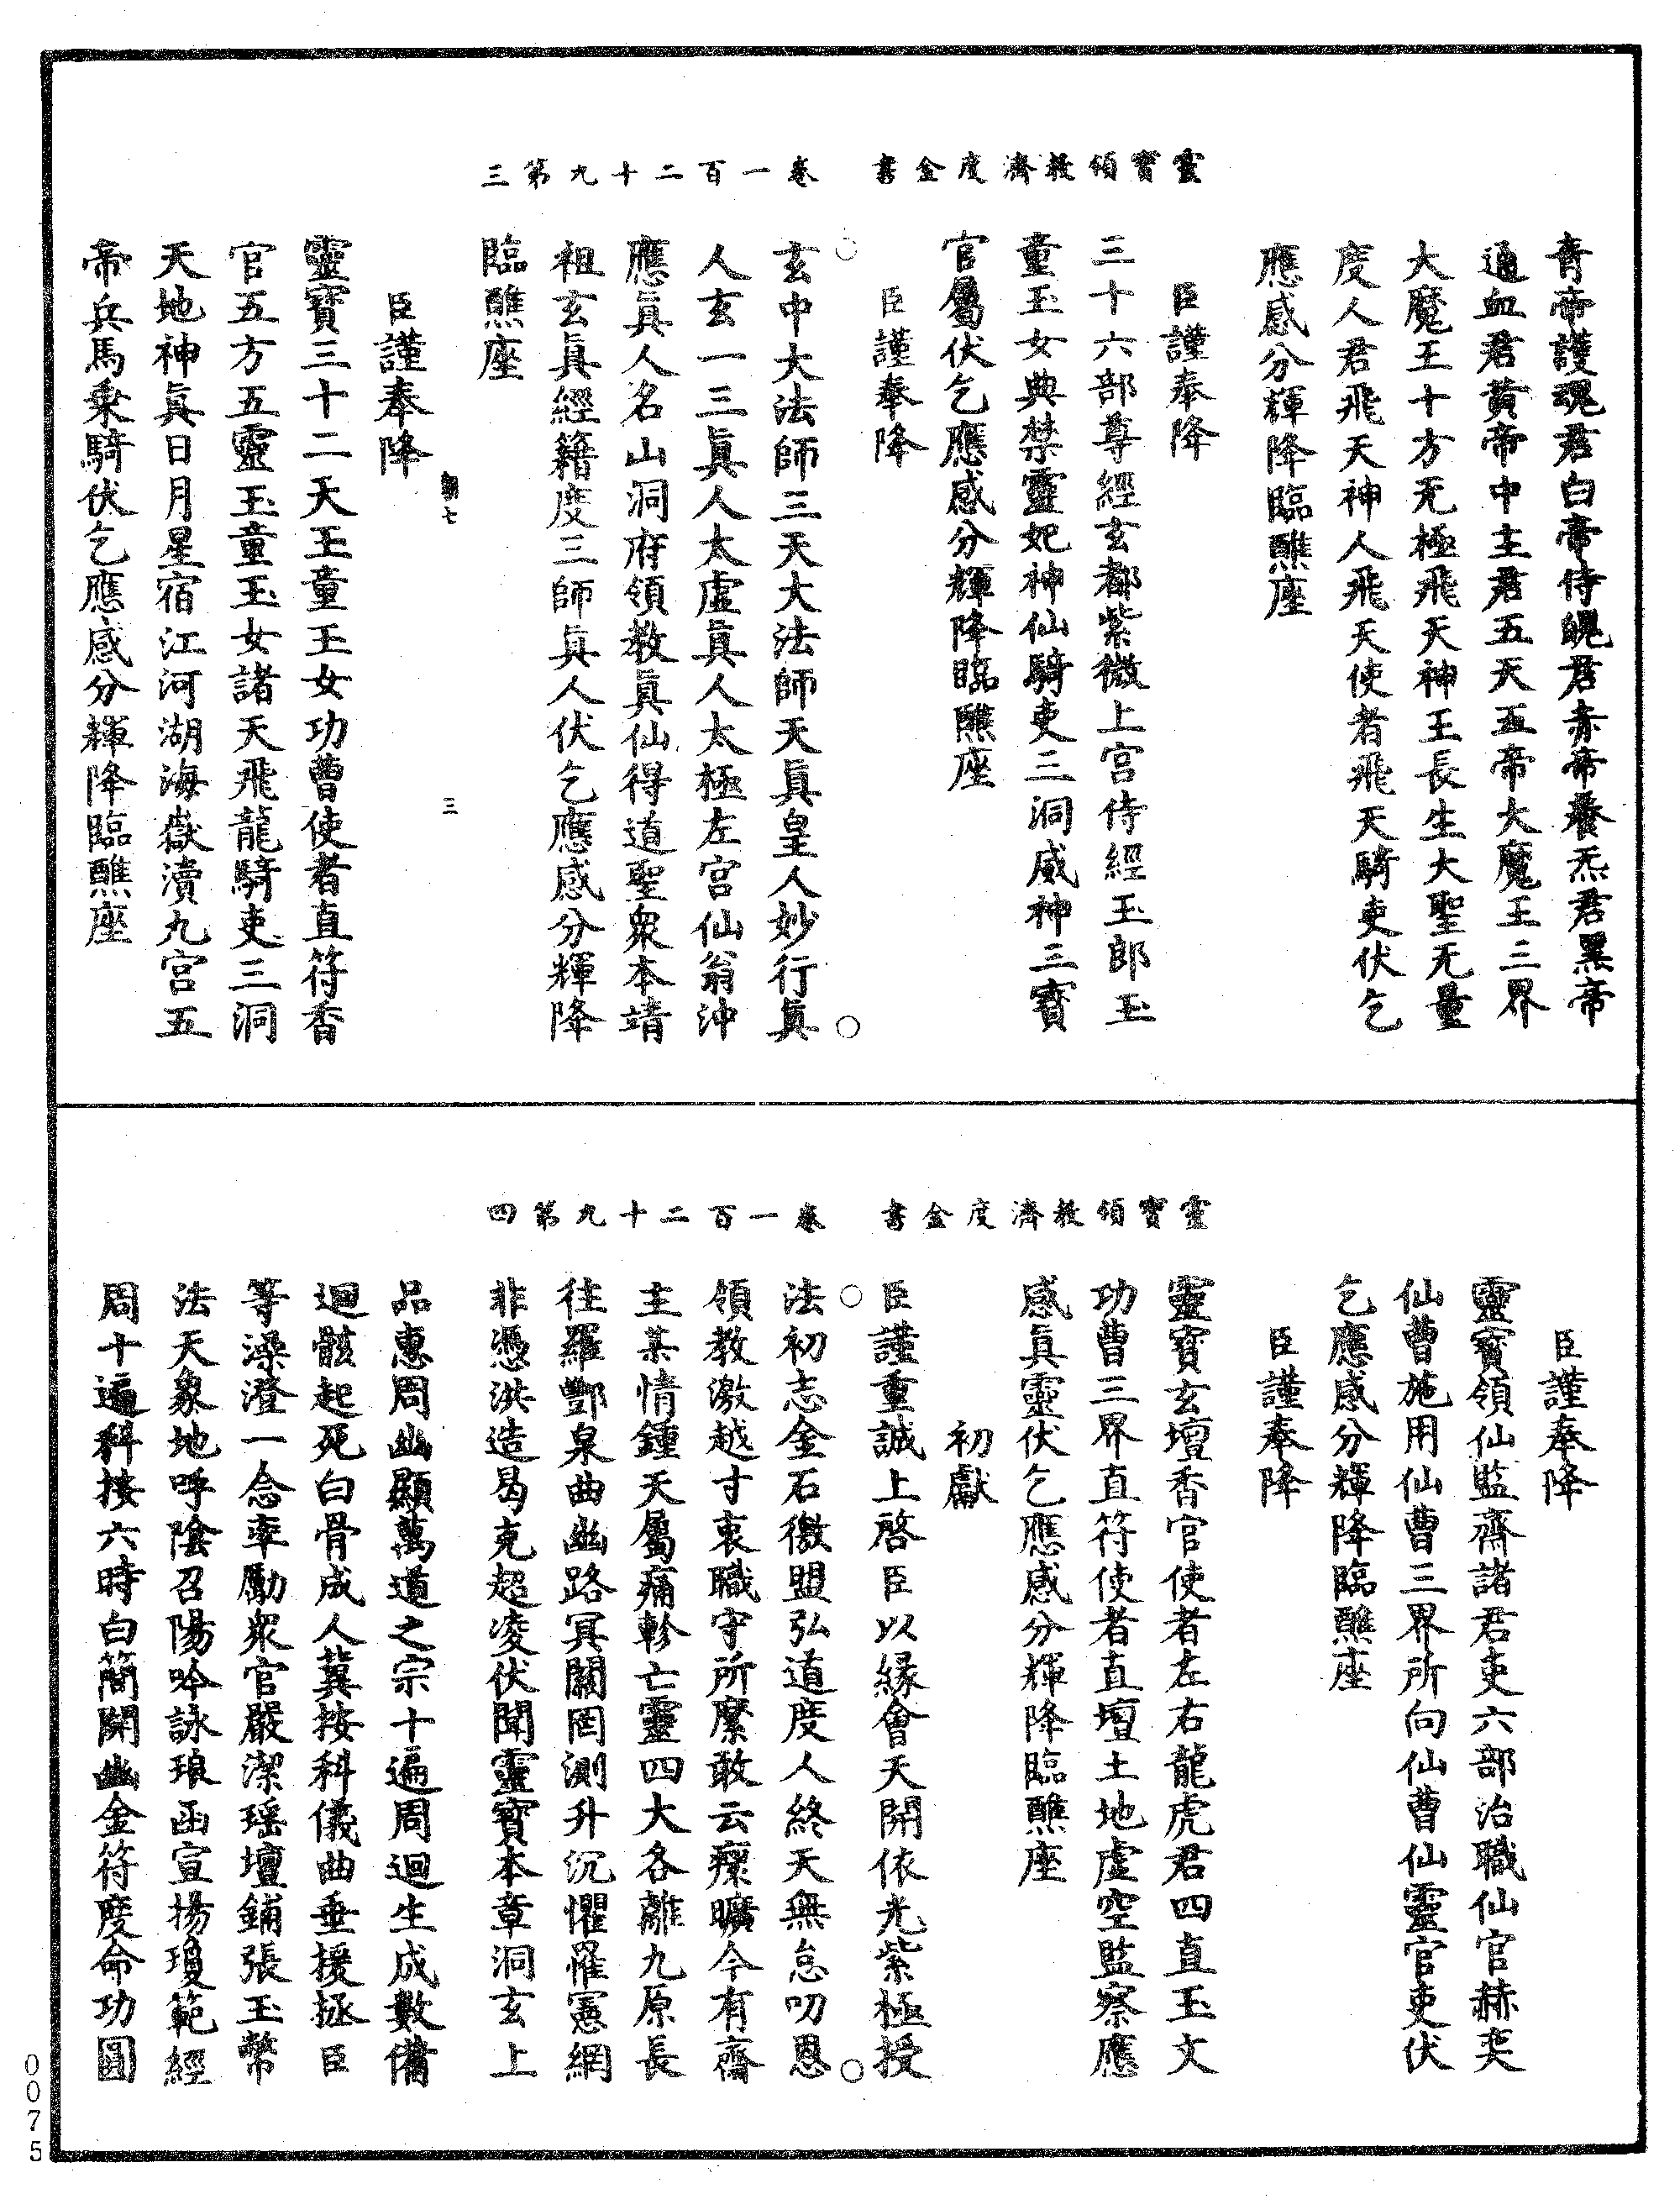 靈寶領教濟度金書　卷一百二十九第三
青帝護魂君白帝侍魄君赤帝養炁君黑帝
通血君黃帝中主君五天五帝大魔王三界
大魔王十方无極飛天神王長生大聖无量
度人君飛天神人飛天使者飛天騎吏伏乞
應感分輝降臨醮座
臣謹奉降
三十六部尊經玄都紫微上宮侍經玉郎玉
童玉女典禁靈妃神仙騎吏三洞威神三寶
官屬伏乞應感分輝降臨醮座
臣謹奉降
玄中大法師三天大法師天真皇人妙行真
人玄一三真人太虛真人太極左宮仙翁沖
應真人名山洞府領教真仙得道聖衆本靖
祖玄真經籍度三師真人伏乞應感分輝降
臨醮座
朝七　三
臣謹奉降
靈寶三十二天玉童玉女功曹使者直符香
官五方五靈玉童玉女諸天飛龍騎吏三洞
天地神真日月星宿江河湖海嶽瀆九宮五
帝兵馬乘騎伏乞應感分輝降臨醮座
靈寶領教濟度金書　卷一百二十九第四
臣謹奉降
靈寶領仙監齋諸君吏六部治職仙官赫奕
仙曹施用仙曹三界所向仙曹仙靈官吏伏
乞應感分輝降臨醮座
臣謹奉降
靈寶玄壇香官使者左右龍虎君四直玉文
功曹三界直符使者直壇土地虛空監察應
感真靈伏乞應感分輝降臨醮座
初獻
臣謹重誠上啓臣以緣會天開依光紫極授
法初志金石徼盟弘道度人終天無怠叨恩
領教激越寸衷職守所縻敢云瘝曠今有齋
主某情鍾天屬痛軫亡靈四大各離九原長
往羅酆泉曲幽路冥關罔測升沉懼罹憲網
非憑洪造曷克超凌伏聞靈寶本章洞玄上
品惠周幽顯萬道之宗十遍周迴生成數備
迴骸起死白骨成人冀按科儀曲垂援拯臣
等澡澄一念率勵衆官嚴潔瑤壇鋪張玉幣
法天象地呼陰召陽吟詠琅函宣揚瓊範經
周十遍科按六時白簡開幽金符度命功圓
0075